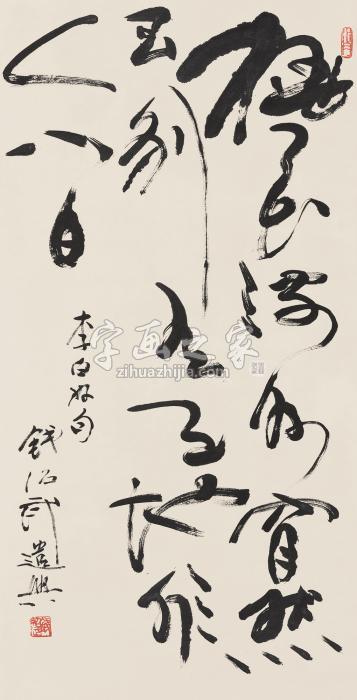 桃花流水窅然
去别有天地非
人间
李白好句
钱绍武遣兴
字画之家
zihuazhijia.com